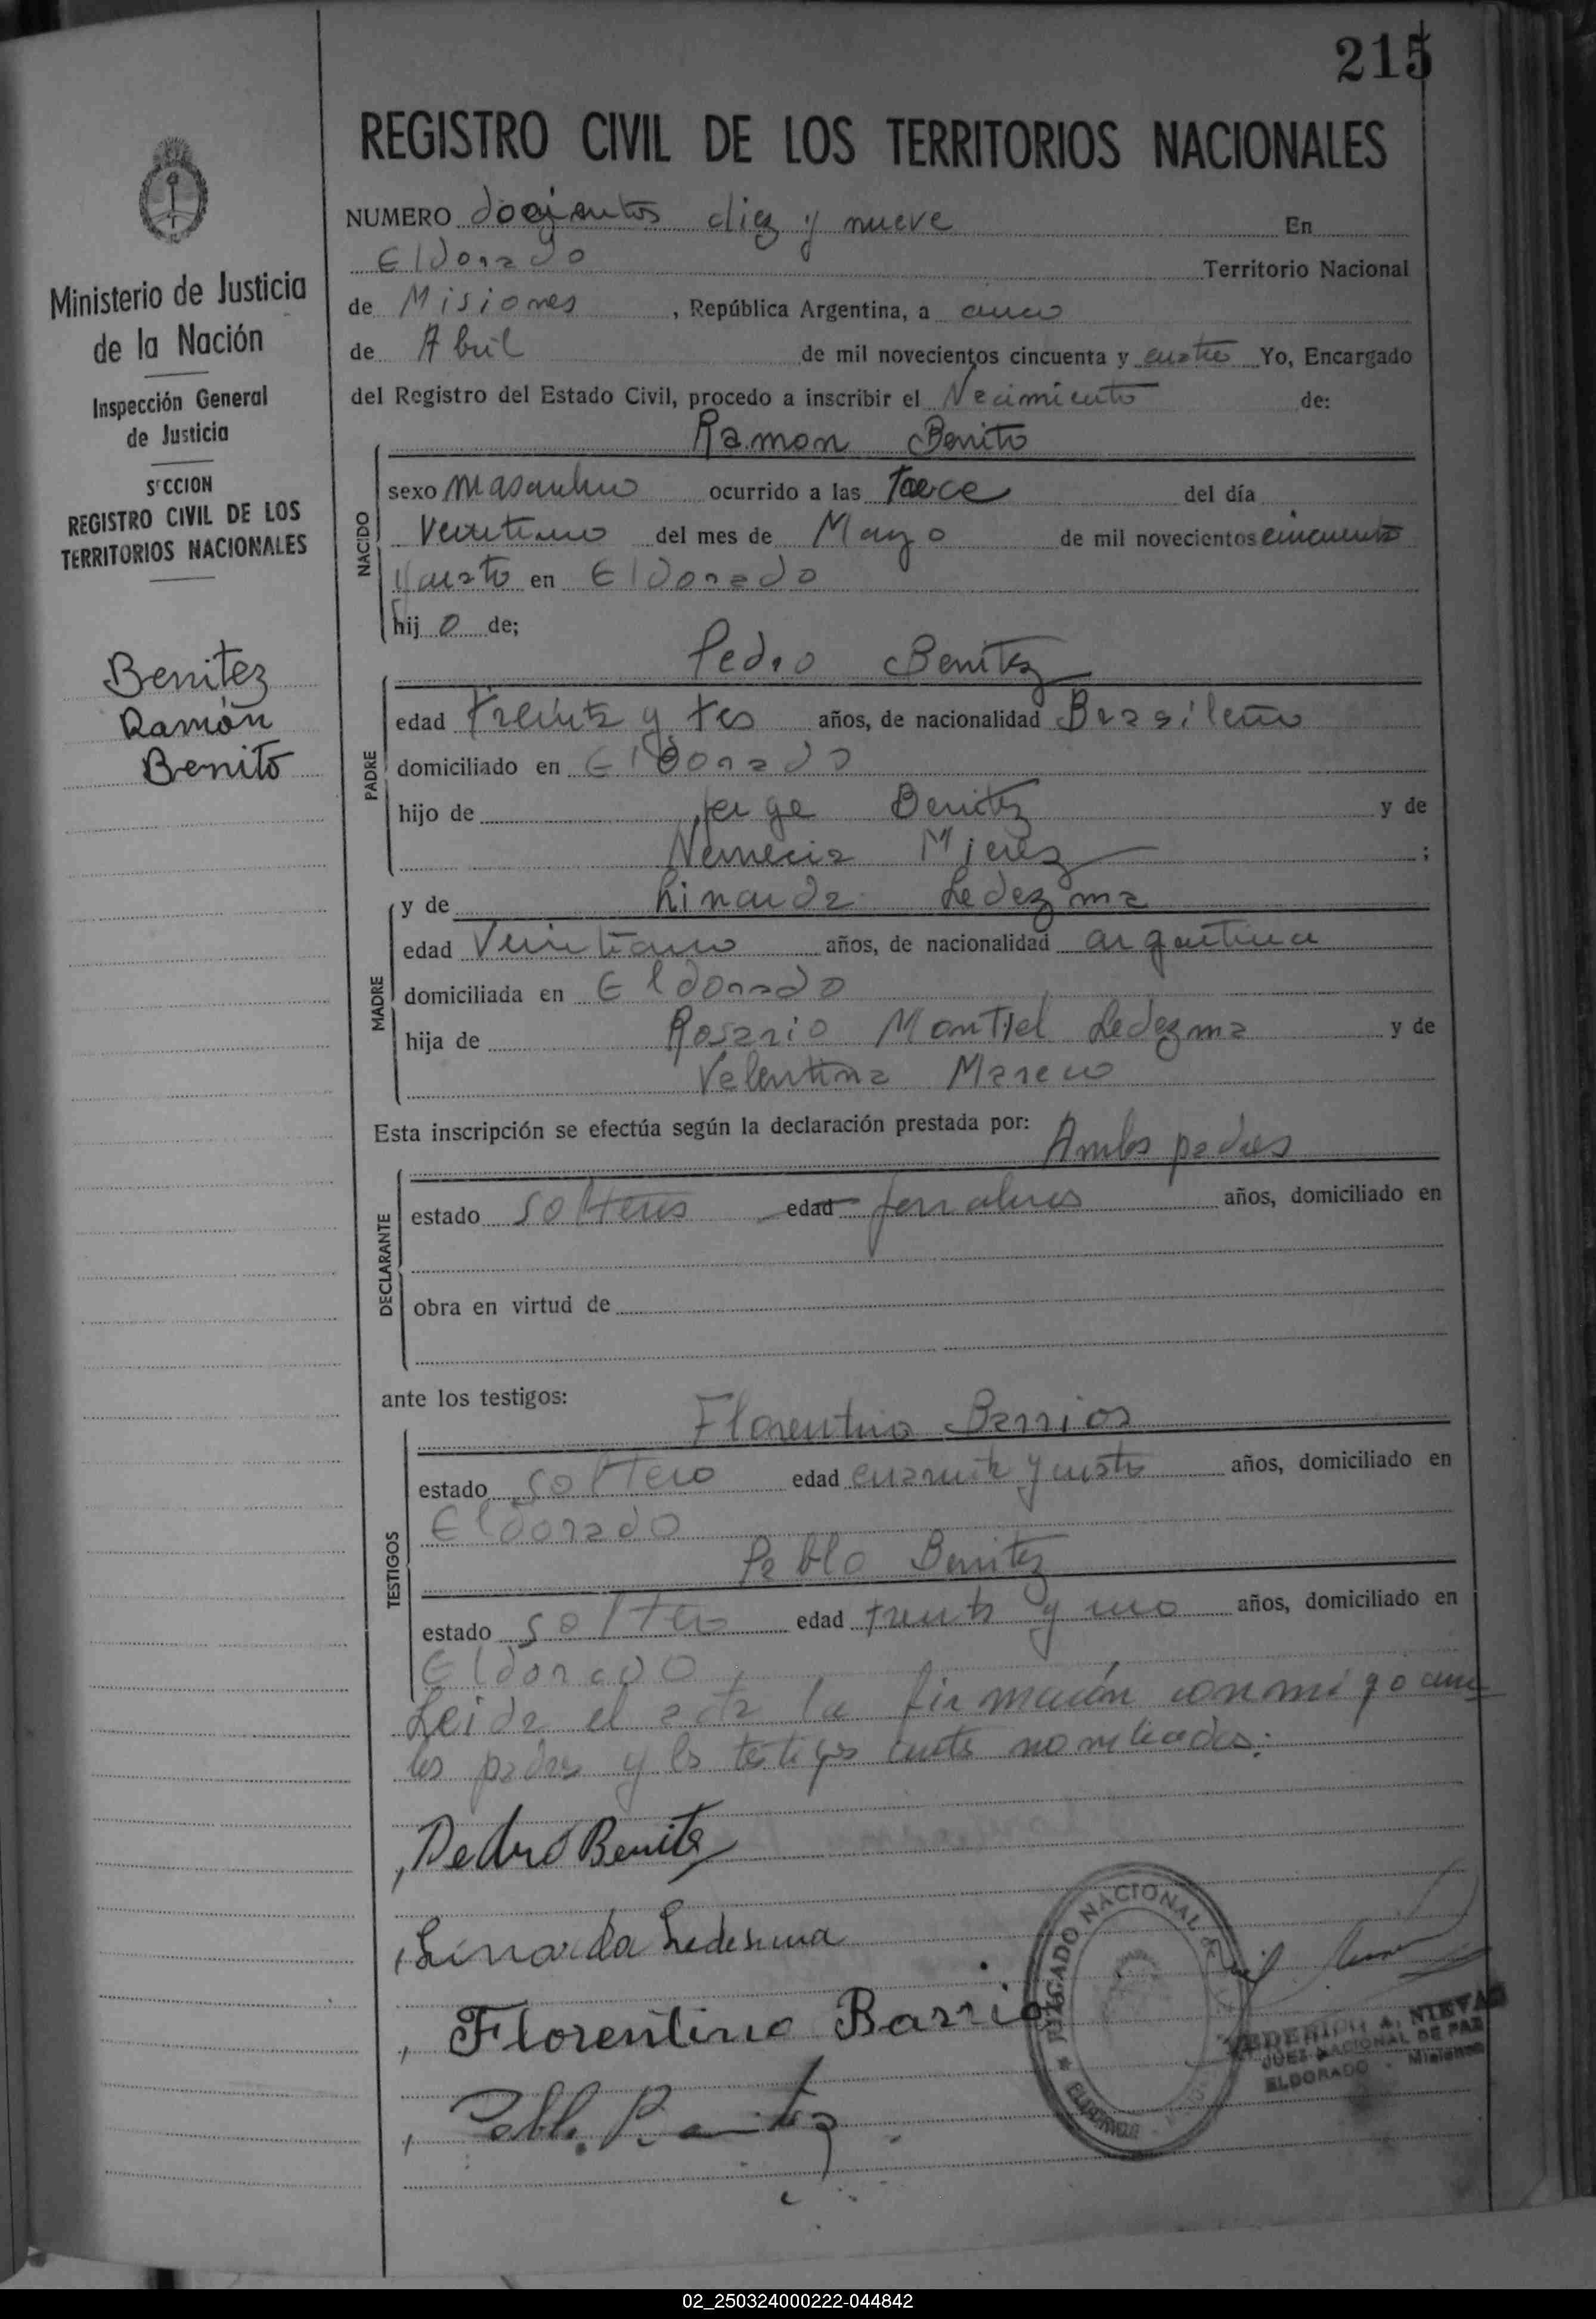 215
REGISTRO CIVIL DE LOS TERRITORIOS NACIONALES
Ministerio de Justicia
de la Nación
Inspección General
de Justicia
SECCION
REGISTRO CIVIL DE LOS
TERRITORIOS NACIONALES
Benitez
Ramón
Benito
NUMERO docientos diez y nueve En
Eldorado Territorio Nacional
de Misiones, República Argentina, a cinco
de Abril de mil novecientos cincuenta y cuatro Yo, Encargado
del Registro del Estado Civil, procedo a inscribir el Nacimiento de:
Ramon Benito
NACIDO
sexo Masculino ocurrido a las del día
del mes de Mayo de mil novecientos cincuenta
y cuatro en Eldorado
hijo de;
Pedro Benitez
PADRE
edad treinta y tres años, de nacionalidad Brasileño
domiciliado en Eldorado
hijo de Jorge Benitez y de
Nemecia ;
MADRE
y de Linarda Ledezma
edad años, de nacionalidad argentina
domiciliada en Eldorado
hija de Rosario Montiel Ledezma y de
Valentina Mareco
Esta inscripción se efectúa según la declaración prestada por: Ambos padres
DECLARANTE
estado solteros edad años, domiciliado en
obra en virtud de
ante los testigos:
TESTIGOS
Florentino Barrios
estado soltero edad cuarenta y cuatro años, domiciliado en
Eldorado
Pablo Benitez
estado soltero edad treinta y uno años, domiciliado en
Eldorado
Leida el acta la firmación conmigo
los padres y los testigos nombrados.
Pedro Benitez
Linarda Ledesma
Florentino Barrios
Pablo Benitez
JUZGADO NACIONAL
ELDORADO
FEDERICO A. NIEVAS
JUEZ NACIONAL DE PAZ
ELDORADO - Misiones
02_250324000222-044842